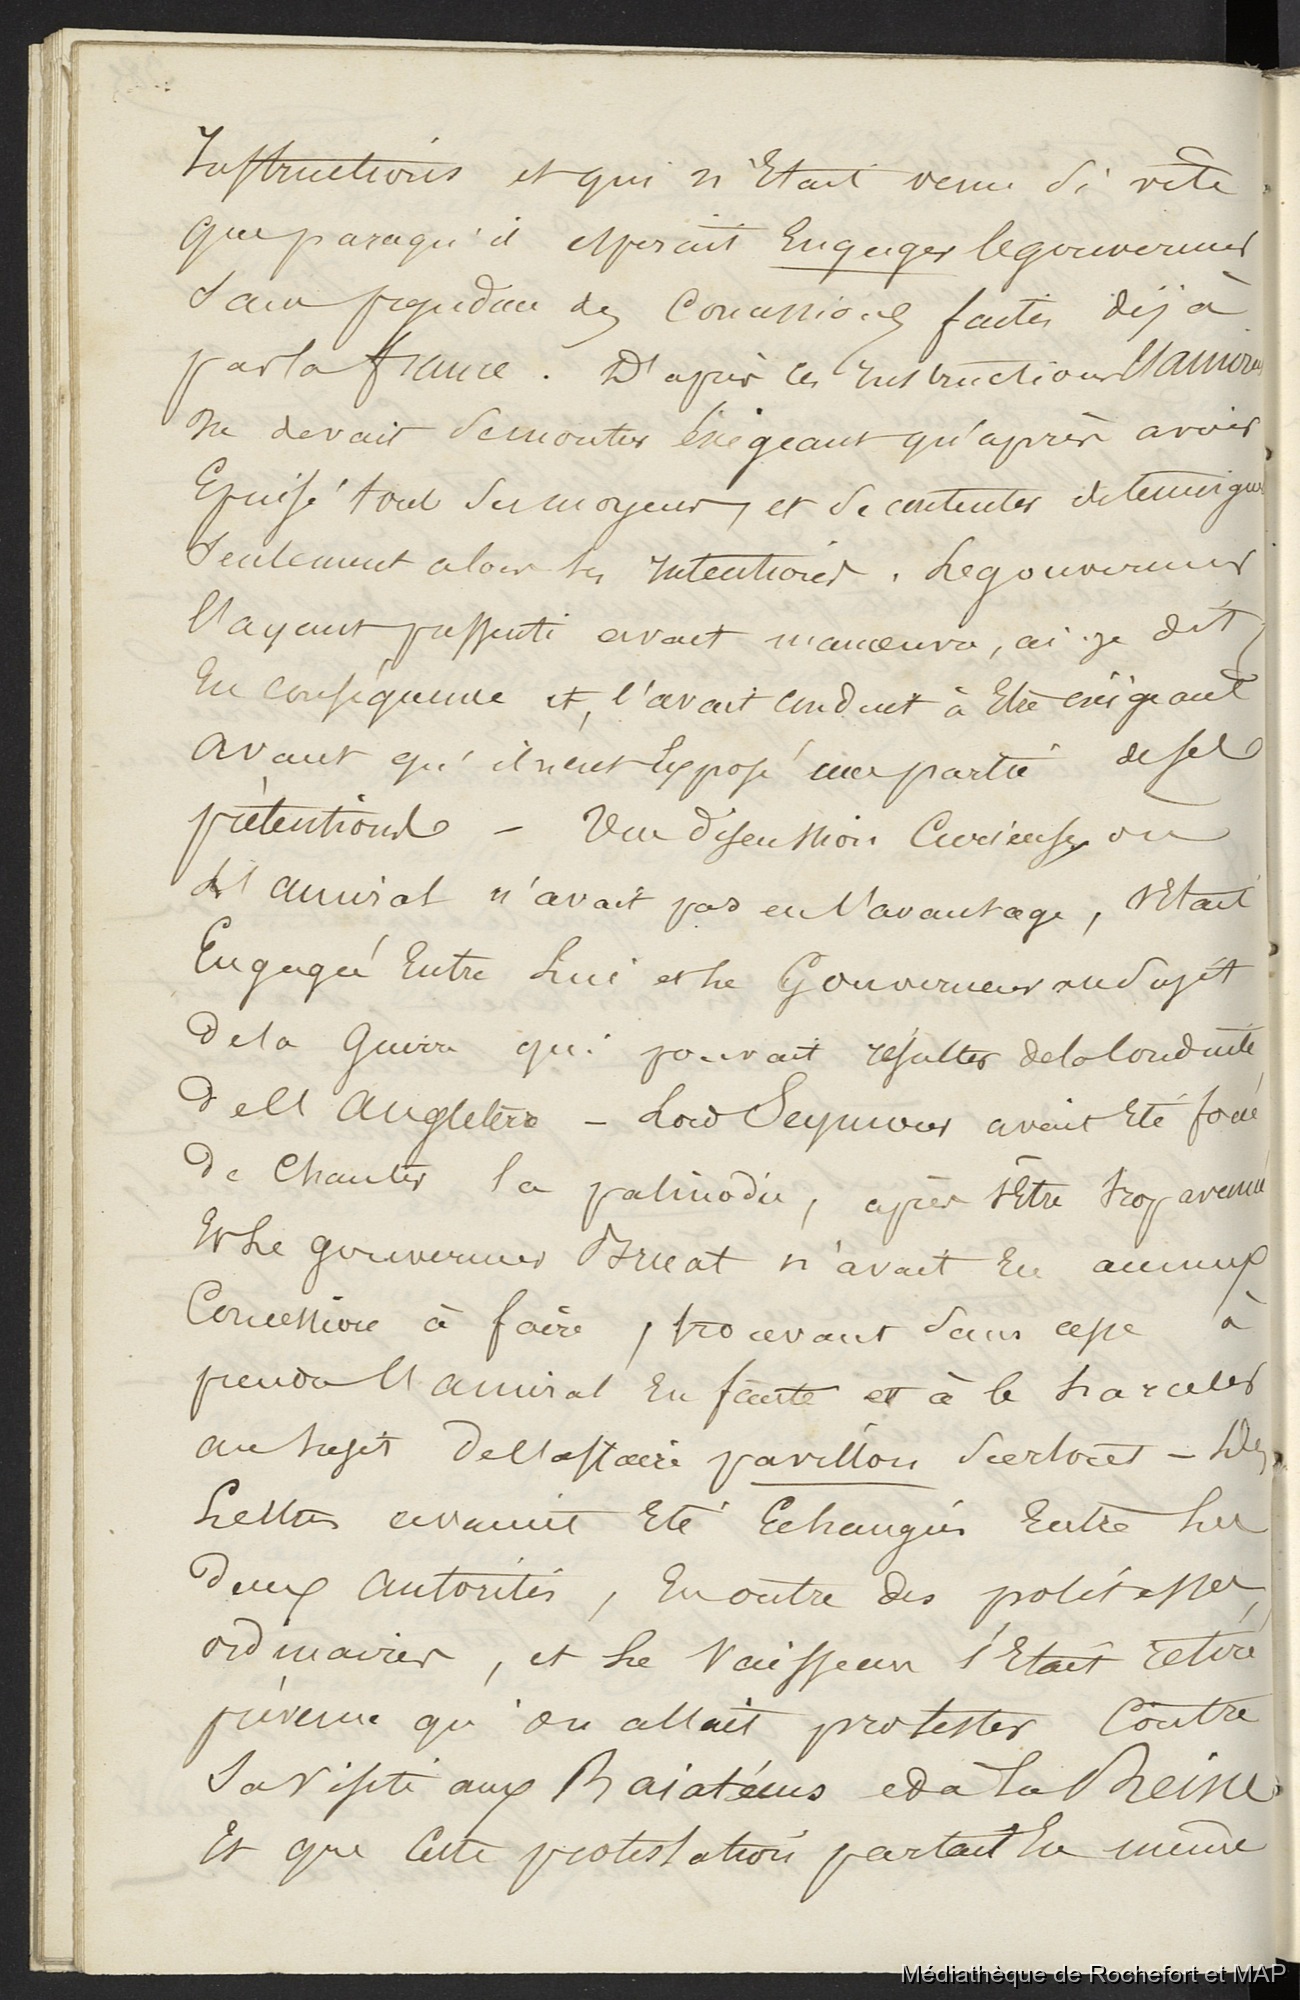 Instructions et qui n'Etait venu si vite
que paraqu'il esperait Engager le gouverneur
sans s'epuiser des Concessions faites déjà
par la france. D'après ces Instructions l'amiral
ne devait se montrer Exigeant qu'après avoir
Epuisé tout ses moyens, et se contenter de temoigner
Seulement alors ses Intentions. Le gouverneur
l'ayant pressenti avait manœuvré, ai-je dit,
En conséquence et, l'avait conduit à Etre exigeant
avant qu'il n'eut Exposé une partie de ses
prétentions — Une discussion Curieuse, où
l'amiral n'avait pas eu l'avantage, s'Etait
Engagée Entre Lui et le Gouverneur au sujet
De la Guerre qui pouvait résulter de la Conduite
De l'Angleterre — Lord Seymour avait Eté forcé
De Chanter la palinodie, après s'Etre trop avancé
Et Le gouverneur Bruat n'avait Eu aucune
Concession à faire, trouvant sans cesse à
prendre l'amiral En faute et à le harceler
au sujet De l'affaire pavillon Scerloes — Des
Lettres avaient Eté Echangées Entre Les
Deux autorités, En outre des politesses
ordinaires, et Le Vaisseau s'Etait retiré
prévenu qu'on allait protester Contre
Sa visite aux Raiatéens et à La Reine
Et que Cette protestation partait En même